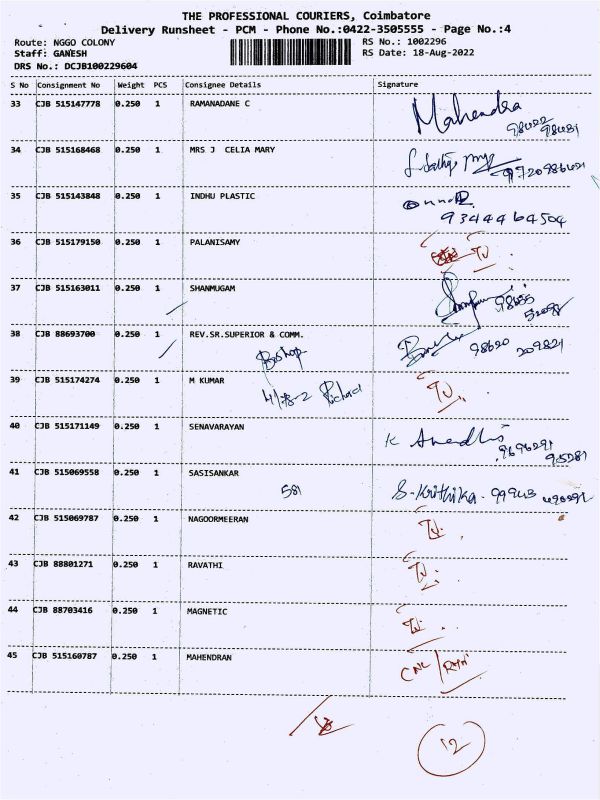 THE PROFESSIONAL COURIERS, Coimbatore
Delivery Runsheet - PCM - Phone No.:0422-3505555 - Page No.:4
Route: NGGO COLONY RS No.: 1002296
Staff: GANESH RS Date: 18-Aug-2022
DRS No.: DCJB100229604
S No Consignment No Weight PCS Consignee Details Signature
33 CJB 515147778 0.250 1 RAMANADANE C Mahendra
34 CJB 515168468 0.250 1 MRS J CELIA MARY
35 CJB 515143848 0.250 1 INDHU PLASTIC
9344464504
36 CJB 515179150 0.250 1 PALANISAMY TJ
37 CJB 515163011 0.250 1 SHANMUGAM
38 CJB 88693700 0.250 1 REV.SR.SUPERIOR & COMM.
Bishop 98620 209821
39 CJB 515174274 0.250 1 M KUMAR TJ
Richard
40 CJB 515171149 0.250 1 SENAVARAYAN
41 CJB 515069558 0.250 1 SASISANKAR
581 S-Krithika - 99943
42 CJB 515069787 0.250 1 NAGOORMEERAN TJ.
43 CJB 88801271 0.250 1 RAVATHI TJ.
44 CJB 88703416 0.250 1 MAGNETIC TJ.
45 CJB 515160787 0.250 1 MAHENDRAN CNL/
12